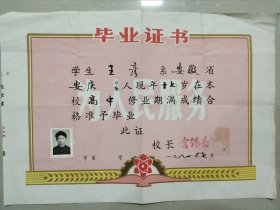 毕业证书
学生王彦系安徽省
安庆 人现年 岁在本
校高中修业期满成绩合
格准予毕业
此证
校长
字第 号
一九八 年七月
为人民服务